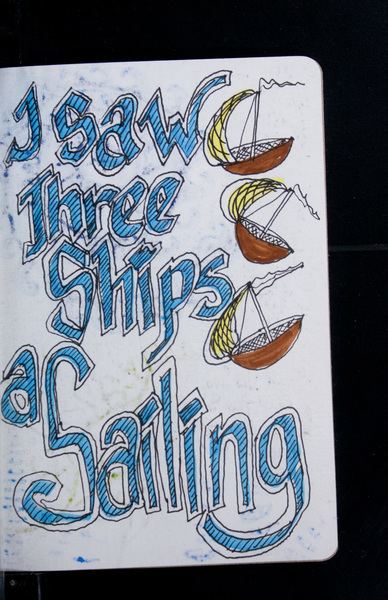 I saw
Three
Ships
a Sailing